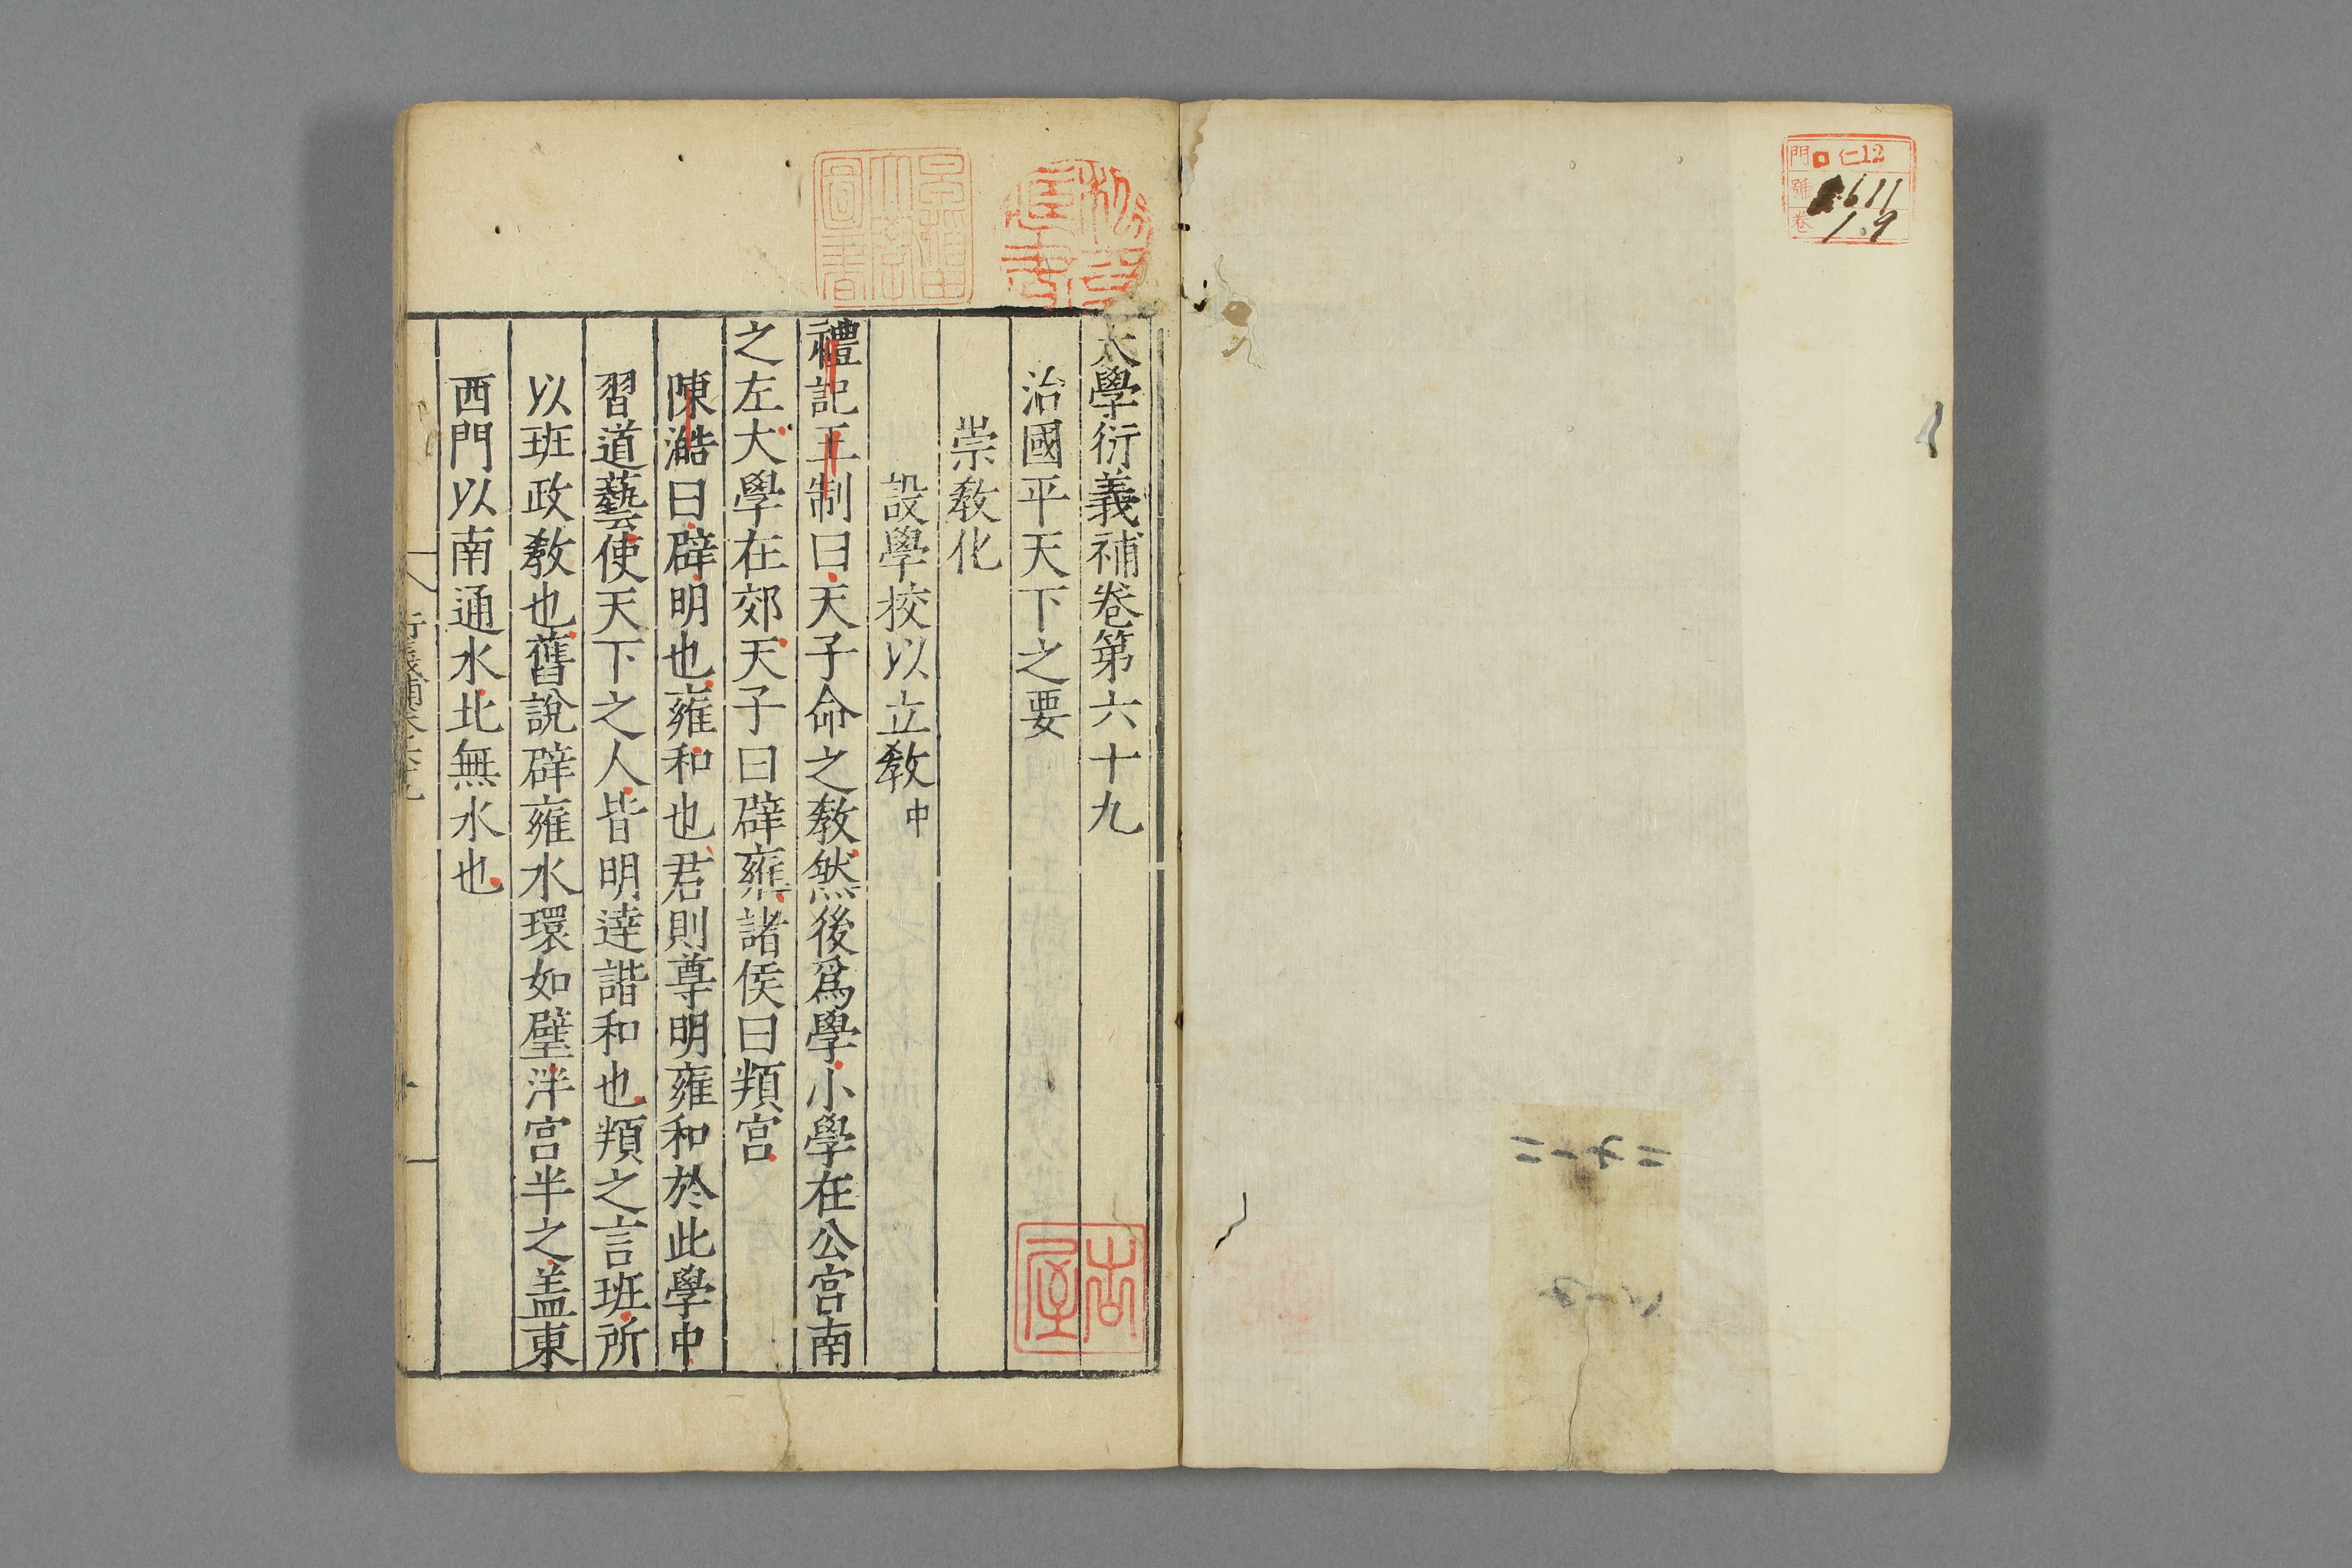 門 ロ 仁12
號 2611
卷 1.9
大學衍義補卷第六十九
治國平天下之要
崇敎化
設學校以立敎中
禮記王制曰天子命之敎然後爲學小學在公宮南
之左大學在郊天子曰辟雍諸侯曰頖宮
陳澔曰辟明也雍和也君則尊明雍和於此學中
習道藝使天下之人皆明達諧和也頖之言班所
以班政敎也舊說辟雍水環如璧泮宮半之盖東
西門以南通水北無水也